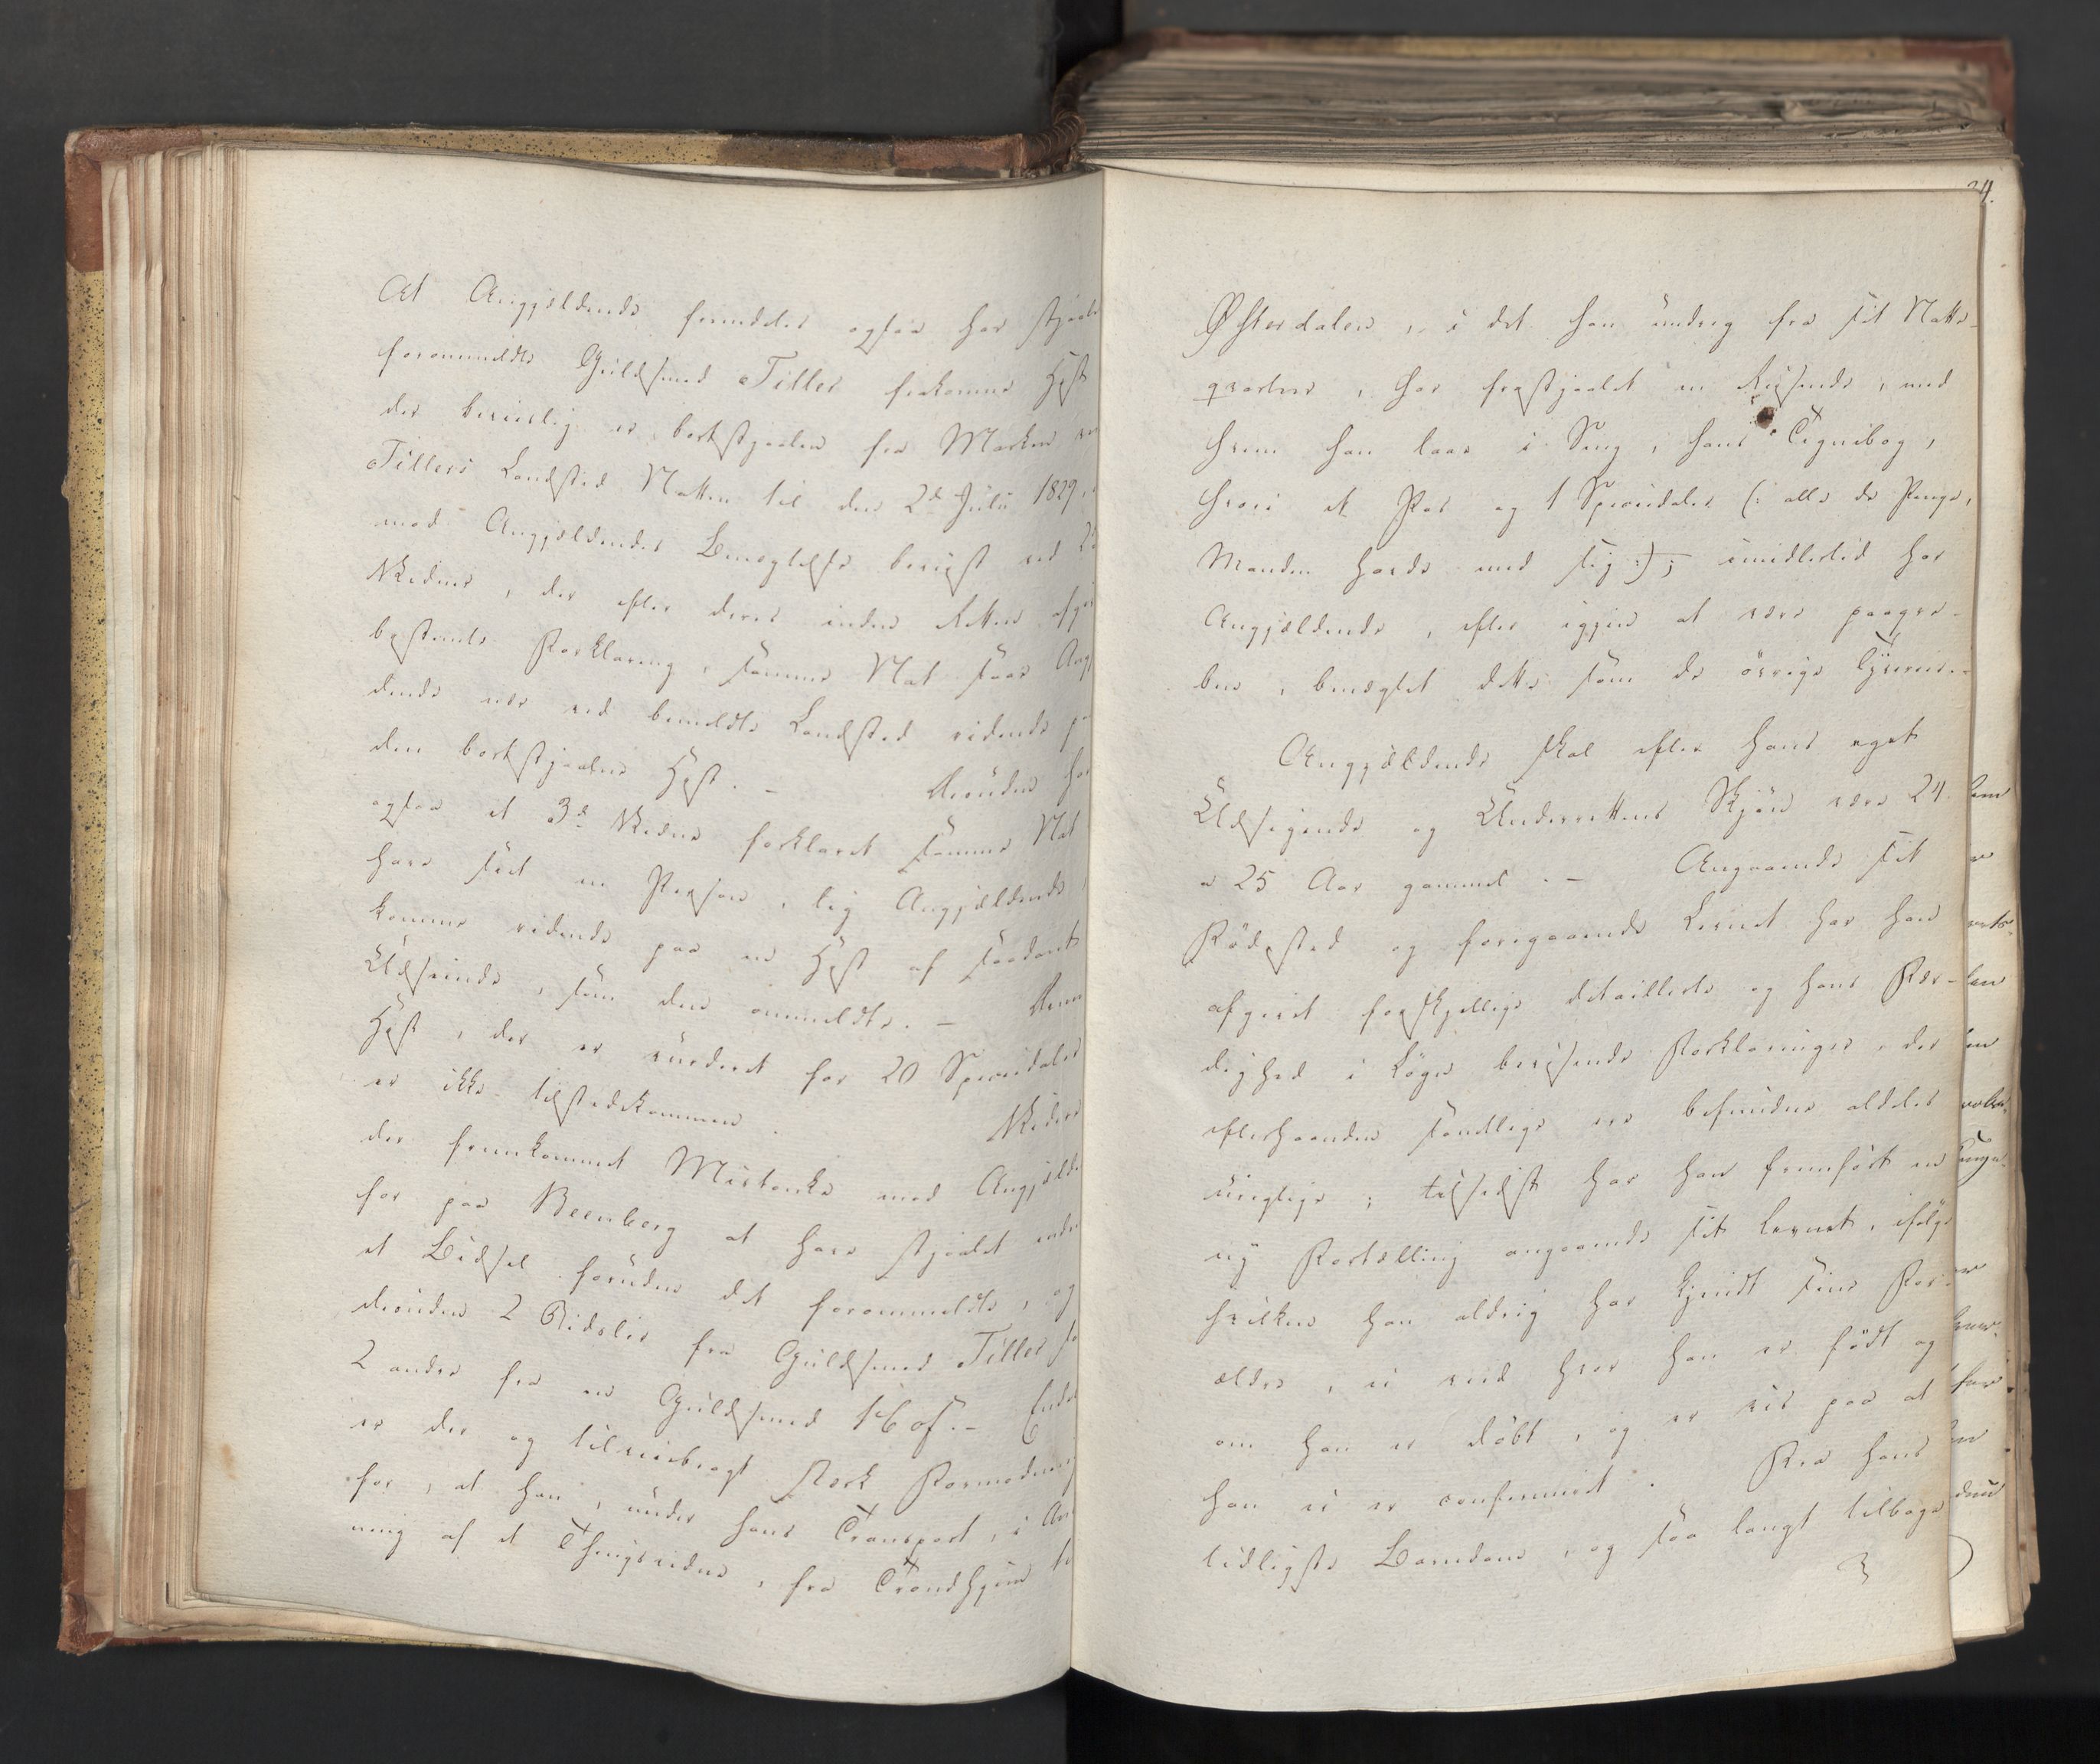 At Angjeldende fremdeles ogsaa har stjaalet
forommeldte Guldsmed Tiller frakomne Hest
der beviislig er bortstjaalen fra Marken
Tillers Landsted Natten til den 2d Juli 1829,
mod Angjeldendes Benegtelse beviist ved
Vidner, der efter deres inden Retten afgivne
bestemte Forklaring, samme Nat saae Angj
dende nær ved bemeldte Landsted ridende
den bortstjaalne Hest. - Desuden har
ogsaa et 3d Vidne forklaret samme Nat
have seet en Person, lig Angjeldende,
komme ridende paa en Hest af saadant
Udseende, som den ommeldte. - Denne
Hest, der er vurderet for 20 Speciedaler
er ikke tilstedekommen. Videre
der fremkommet Mistanke mod Angjelde
for paa Beenberg at have stjaalet endnu
et Bidsel foruden det forommeldte, og
desuden 2 Bidsler fra Guldsmed Tiller
2 andre fra en Guldsmed Hof. - Endel
er der og tilveiebragt stærk Formodning
for, at han, under hans Transport, i An
ning af et Thingsvidne, fra Trondhjem til
24.
Østerdalen, i det han undveg fra sit Natte-
qvarteer, har frastjaalet en Reisende, med
hvem han laae i Seng, hans Tegnebog,
hvori et Pas og 1 Speciedaler (: alle de Penge,
Manden havde med sig :); imidlertid har
Angjeldende, efter igjen at være paagre-
ben, benegtet dette som de øvrige Tyverier.
Angjeldende skal efter hans eget
Udsigende og Underrettens Skjøn være 24
a 25 Aar gammel. - Angaaende sit
Fødested og foregaaende Levnet har han
afgivet forskjellige detaillerte og hans Fær-
dighed i Løgn bevisende Forklaringer, der
efterhaanden samtlige ere befundne aldeles
urigtige; tilsidst har han fremført en
ny Fortælling angaaende sit Levnet, ifølge
hvilken han aldrig har kjendt sine For-
ældre, ei veed hvor han er født og
om han er døbt, og er vis paa at
han ei er confirmeret. Fra hans
tidligste Barndom, og saa langt tilbage